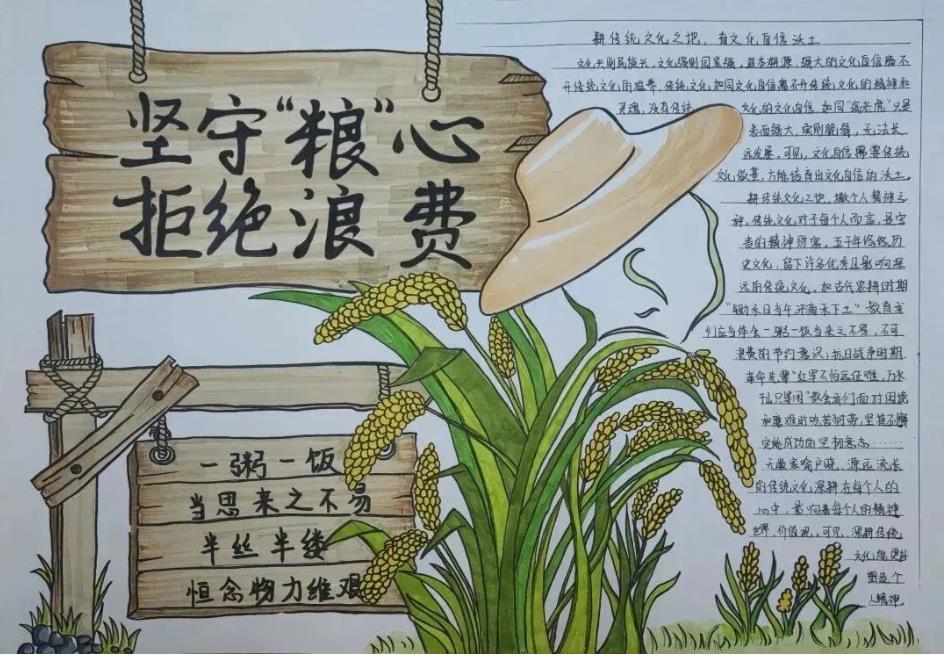 坚守“粮”心
拒绝浪费
一粥一饭
当思来之不易
半丝半缕
恒念物力维艰
耕传统文化之地，育文化自信沃土
文化兴则民族兴，文化强则国家强，追本溯源，强大的文化自信离不
开传统文化的滋养，传统文化如同文化自信离不开传统文化的精神和
灵魂，没有传统
文化的文化自信，如同“纸老虎”只是
表面强大，实则脆弱，无法长
远发展，可见，文化自信需要传统
文化做基，方能培育出文化自信的沃土。
耕传统文化之地，撒个人精神之
种，传统文化对于每个人而言，是宝
贵的精神财富。五千年悠悠历
史文化，留下许多优秀且影响深
远的传统文化。如古代农耕时期
“锄禾日当午，汗滴禾下土”教育我
们应当体会一粥一饭当来之不易，不可
浪费的节约意识；抗日战争时期
革命先辈“红军不怕远征难，万水
千山只等闲”教会我们面对困境
和磨难时吃苦耐劳，坚持不懈
定能成功的坚韧意志……
无数家喻户晓、源远流长
的传统文化深耕在每个人的
心中，影响着每个人的精神
世界，价值观，可见，深耕传统
文化能更好
塑造个
人精神。